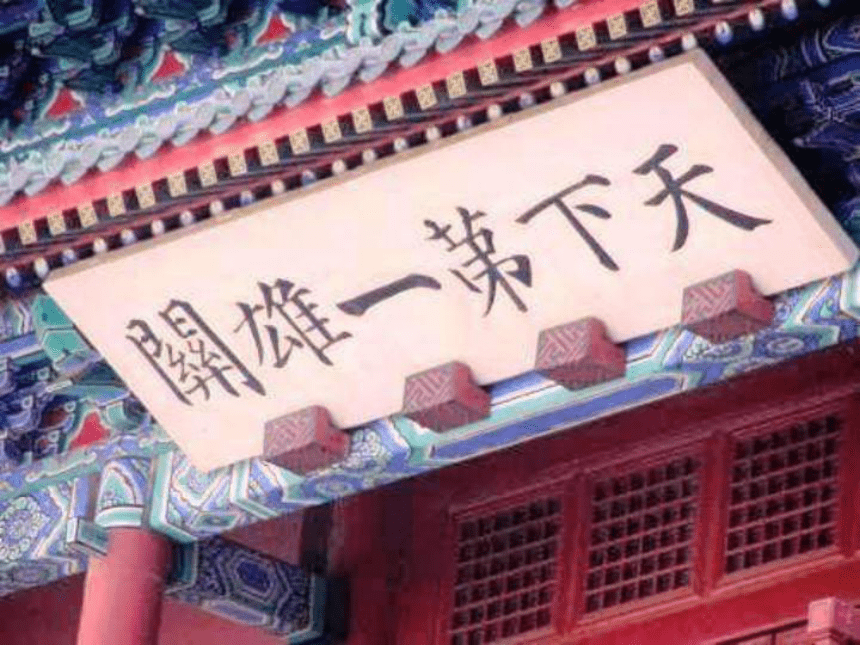 天下第一雄關